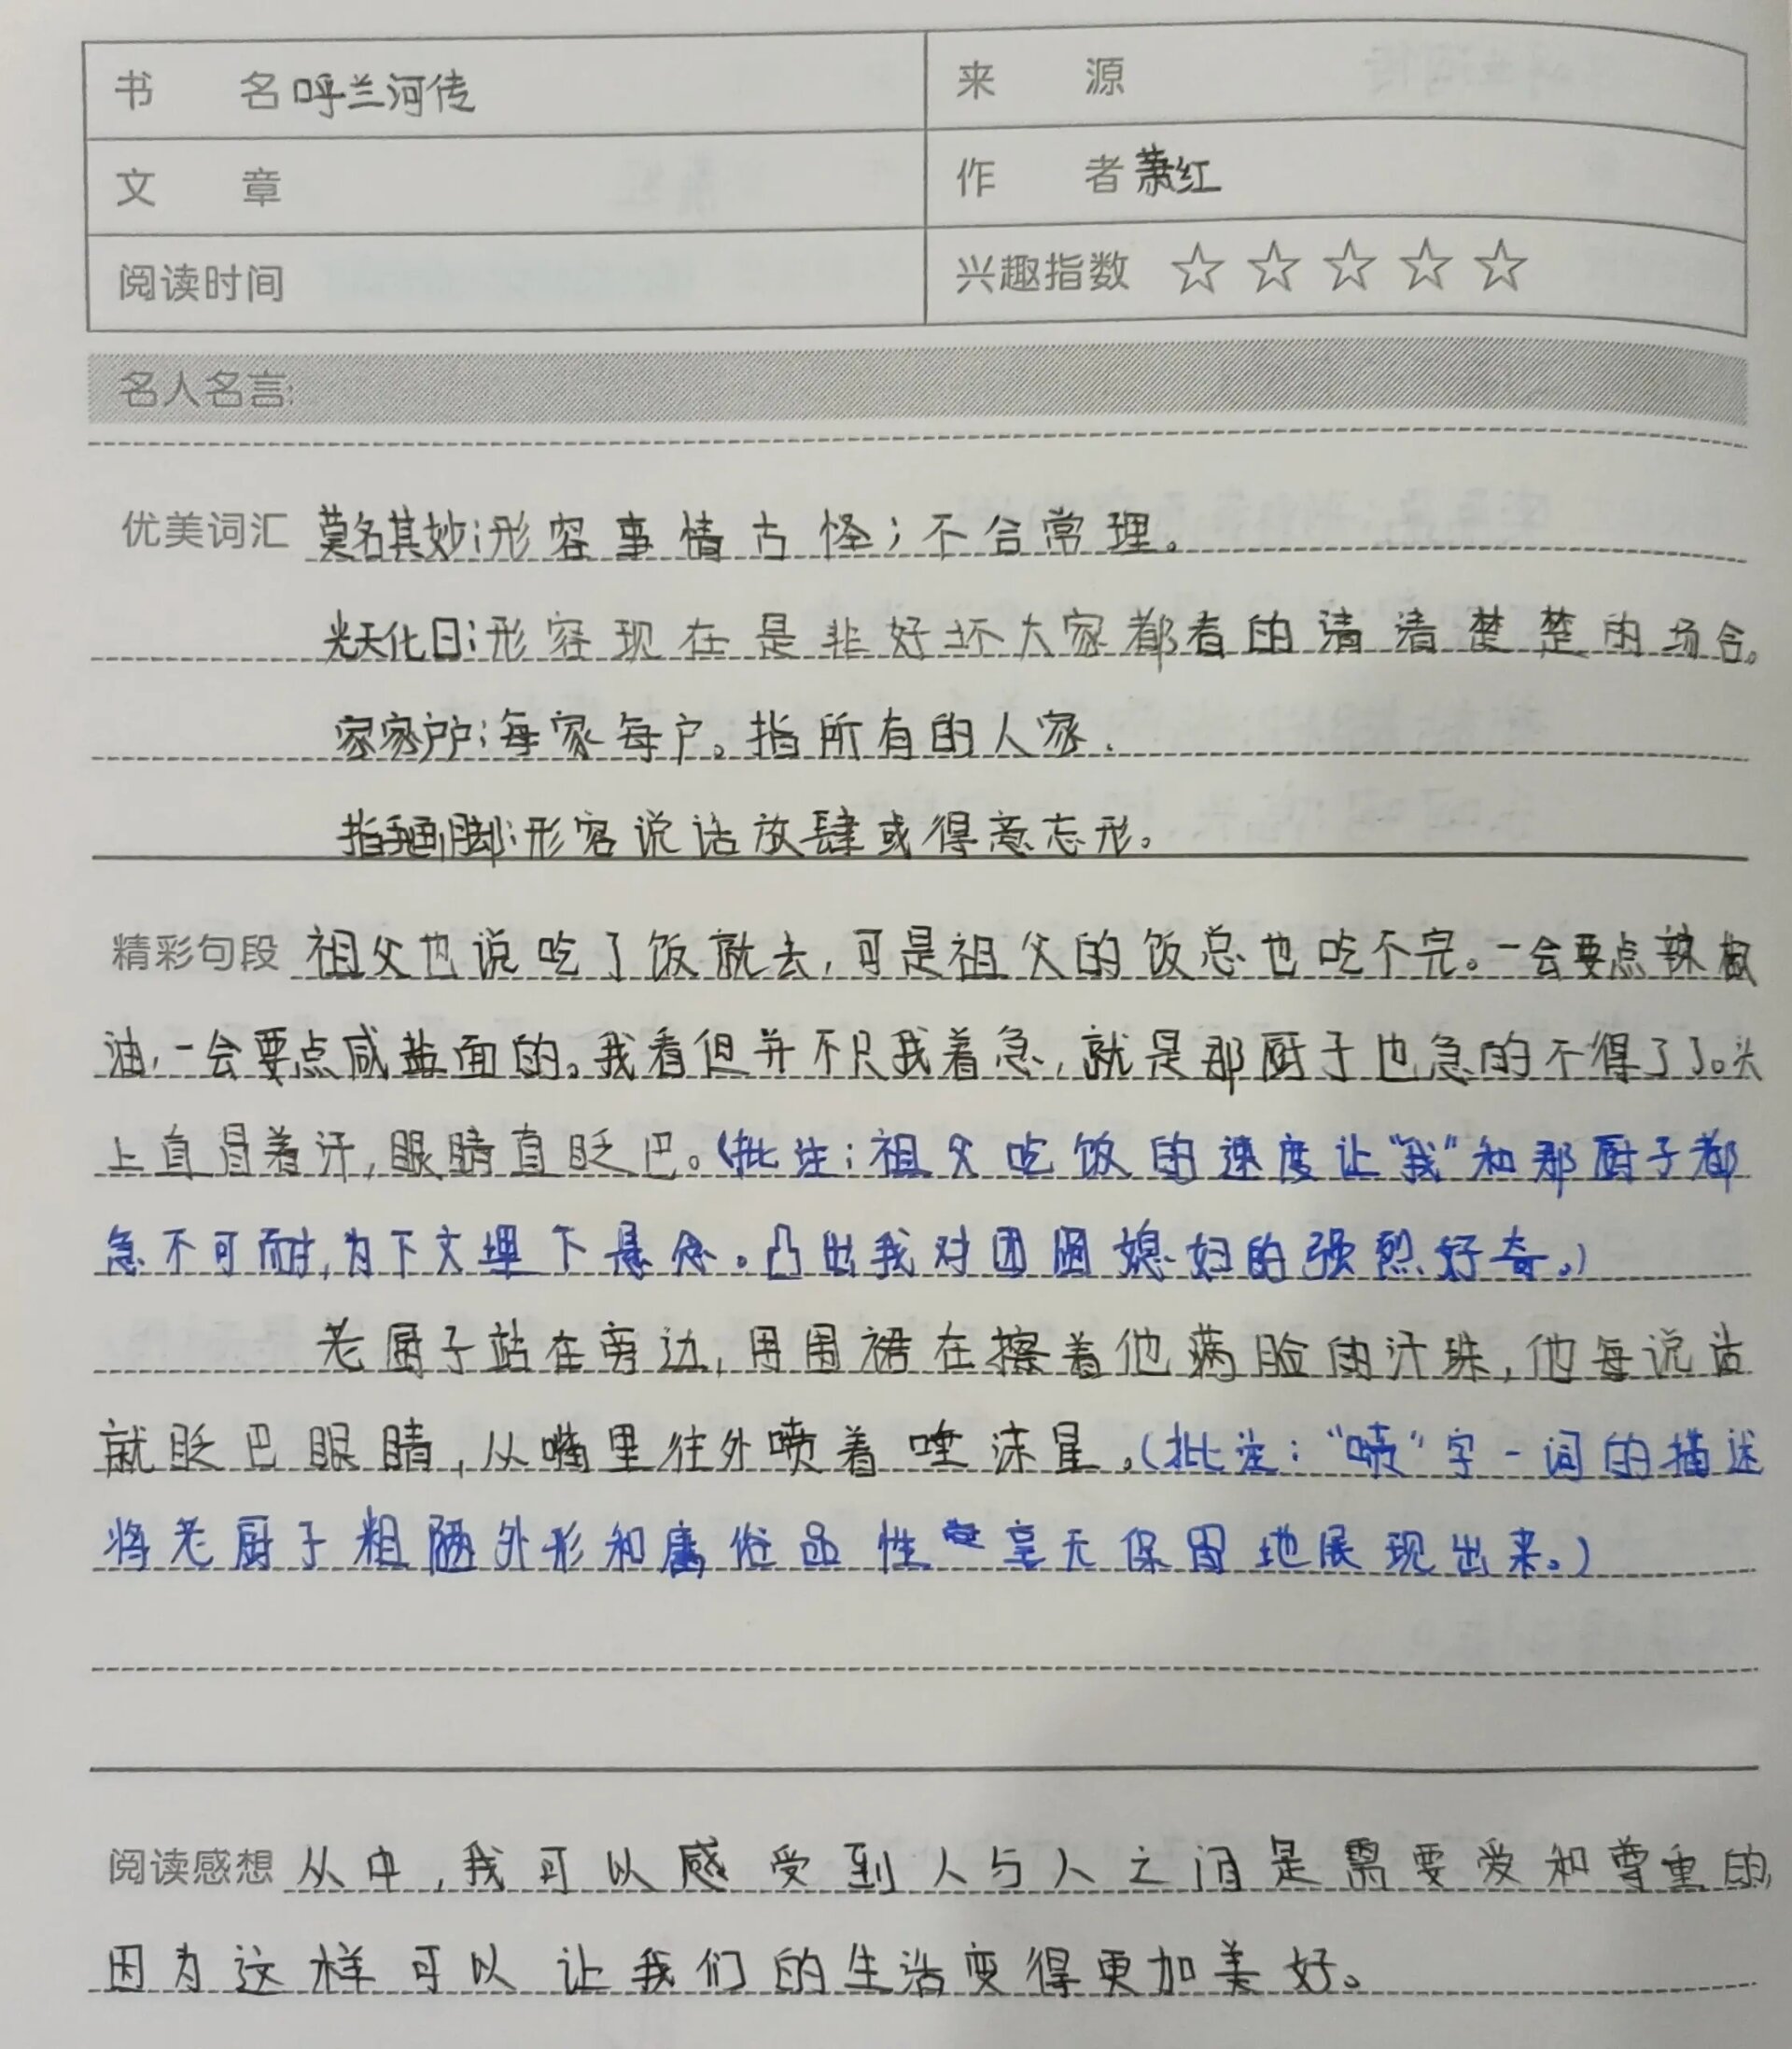 书 名 呼兰河传 来 源
文 章 作 者 萧红
阅读时间 兴趣指数 ☆☆☆☆☆
名人名言:
优美词汇 莫名其妙:形容事情古怪;不合常理。
光天化日:形容现在是非好坏大家都看的清清楚楚的场合。
家家户户:每家每户。指所有的人家.
指手画脚:形容说话放肆或得意忘形。
精彩句段 祖父也说吃了饭就去,可是祖父的饭总也吃不完。一会要点辣椒
油,一会要点咸盐面的。我看但并不只我着急,就是那厨子也急的不得了了。头
上直冒着汗,眼睛直眨巴。(批注:祖父吃饭的速度让“我”和那厨子都
急不可耐,为下文埋下悬念。凸出我对团圆媳妇的强烈好奇。)
老厨子站在旁边,用围裙在擦着他满脸的汗珠,他每说话
就眨巴眼睛,从嘴里往外喷着唾沫星。(批注:“喷”字一词的描述
将老厨子粗陋外形和庸俗品性毫无保留地展现出来。)
阅读感想 从中,我可以感受到人与人之间是需要爱和尊重的,
因为这样可以让我们的生活变得更加美好。